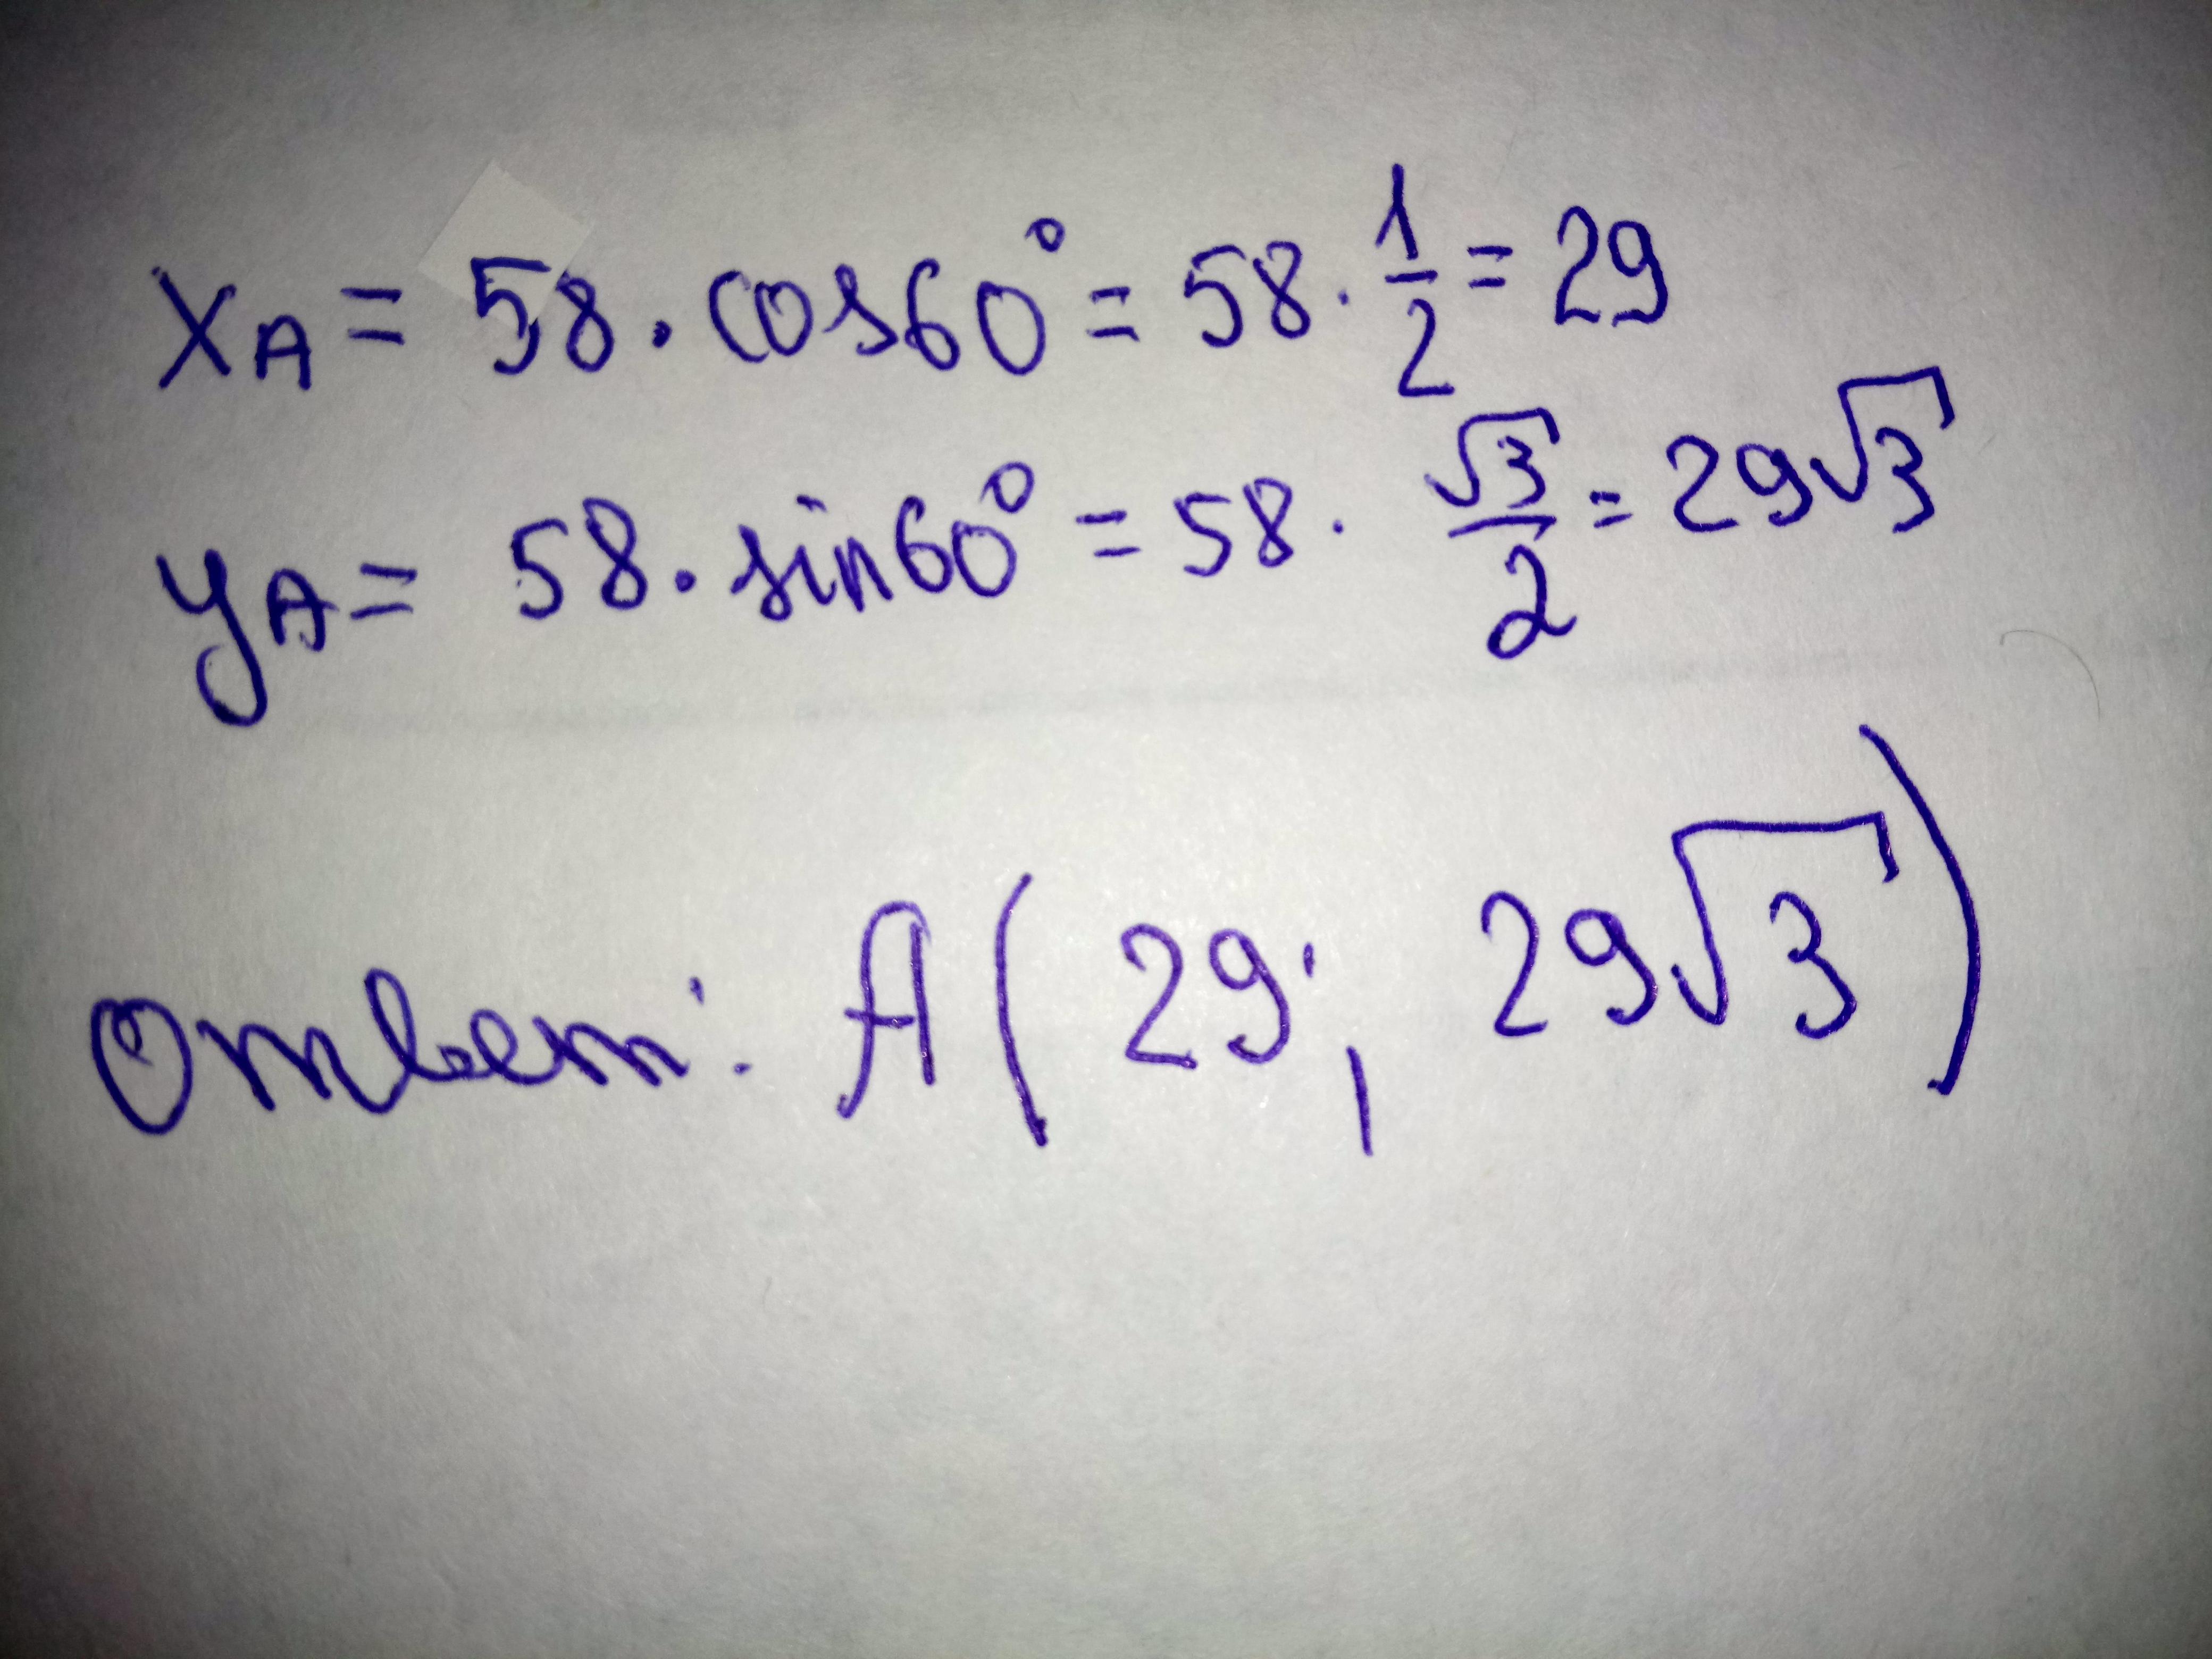 x_A = 58 · cos60° = 58 · 1/2 = 29
y_A = 58 · sin60° = 58 · √3/2 = 29√3
Ответ: А(29; 29√3)